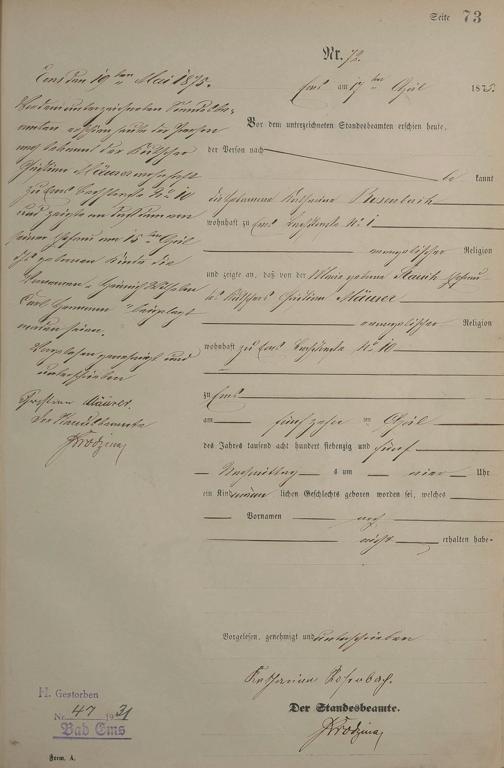 Seite 73
Nr. 72.
Ems am 17ten April 1875.
Vor dem unterzeichneten Standesbeamten erschien heute,
der Person nach be kannt
die Hebamme Katharina Rosenbach
wohnhaft zu Ems No 1
evangelischer Religion
und zeigte an, daß von der Marie geborne Ehefrau
des Kutschers Christian Mäurer
evangelischer Religion
wohnhaft zu Ems No 10
zu Ems
am fünfzehn ten April
des Jahres tausend acht hundert siebenzig und fünf
Nachmittag s um vier Uhr
ein Kind männ lichen Geschlechts geboren worden sei, welches
Vornamen noch
nicht erhalten habe
Vorgelesen, genehmigt und unterschrieben
Katharina Rosenbach.
Der Standesbeamte.
Ems den 19ten Mai 1875.
Vor dem unterzeichneten Standesbe-
amten erschien heute der Person
nach bekannt der Kutscher
Christian Mäurer wohnhaft
zu Ems No 10
und zeigte an daß
seiner Ehefrau am 15ten April
geborenen Kinde die
Vornamen Heinrich Wilhelm
Carl Hermann beigelegt
worden seien.
Vorgelesen genehmigt und
unterschrieben
Christian Mäurer.
Der Standesbeamte
H. Gestorben
Nr. 47 1931
Bad Ems
Form. A.